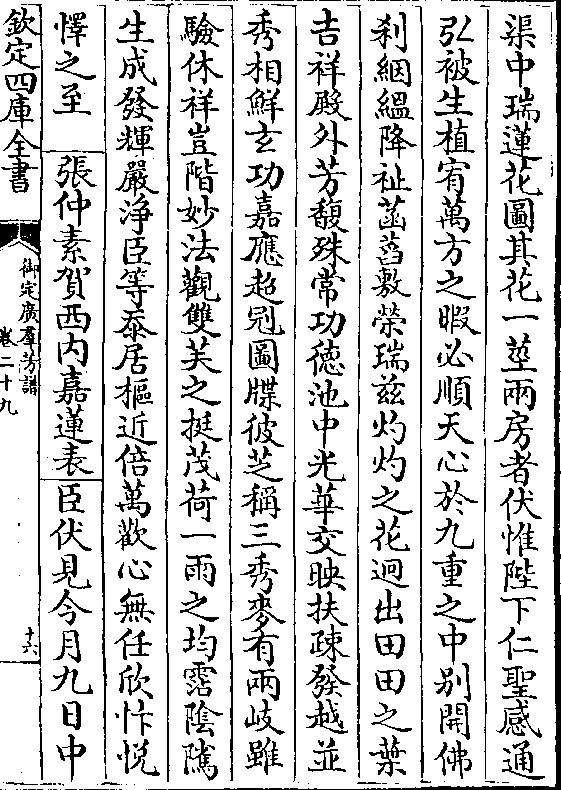 渠中瑞蓮花圖其花一莖兩房者伏惟陛下仁聖感通
弘被生植宥萬方之暇必順天心於九重之中别開佛
刹絪緼降祉菡萏敷榮瑞兹灼灼之花迥出田田之葉
吉祥殿外芳馥殊常功徳池中光華交映扶疎發越並
秀相鮮玄功嘉應超冠圖牒彼芝稱三秀麥有兩岐雖
驗休祥豈階妙法觀雙芙之挺茂荷一雨之均霑陰隲
生成發輝嚴浄臣等忝居樞近倍萬歡心無任欣忭悦
懌之至 張仲素賀西内嘉蓮表 臣伏見今月九日中
欽定四庫全書
御定廣羣芳譜
卷二十九
十六